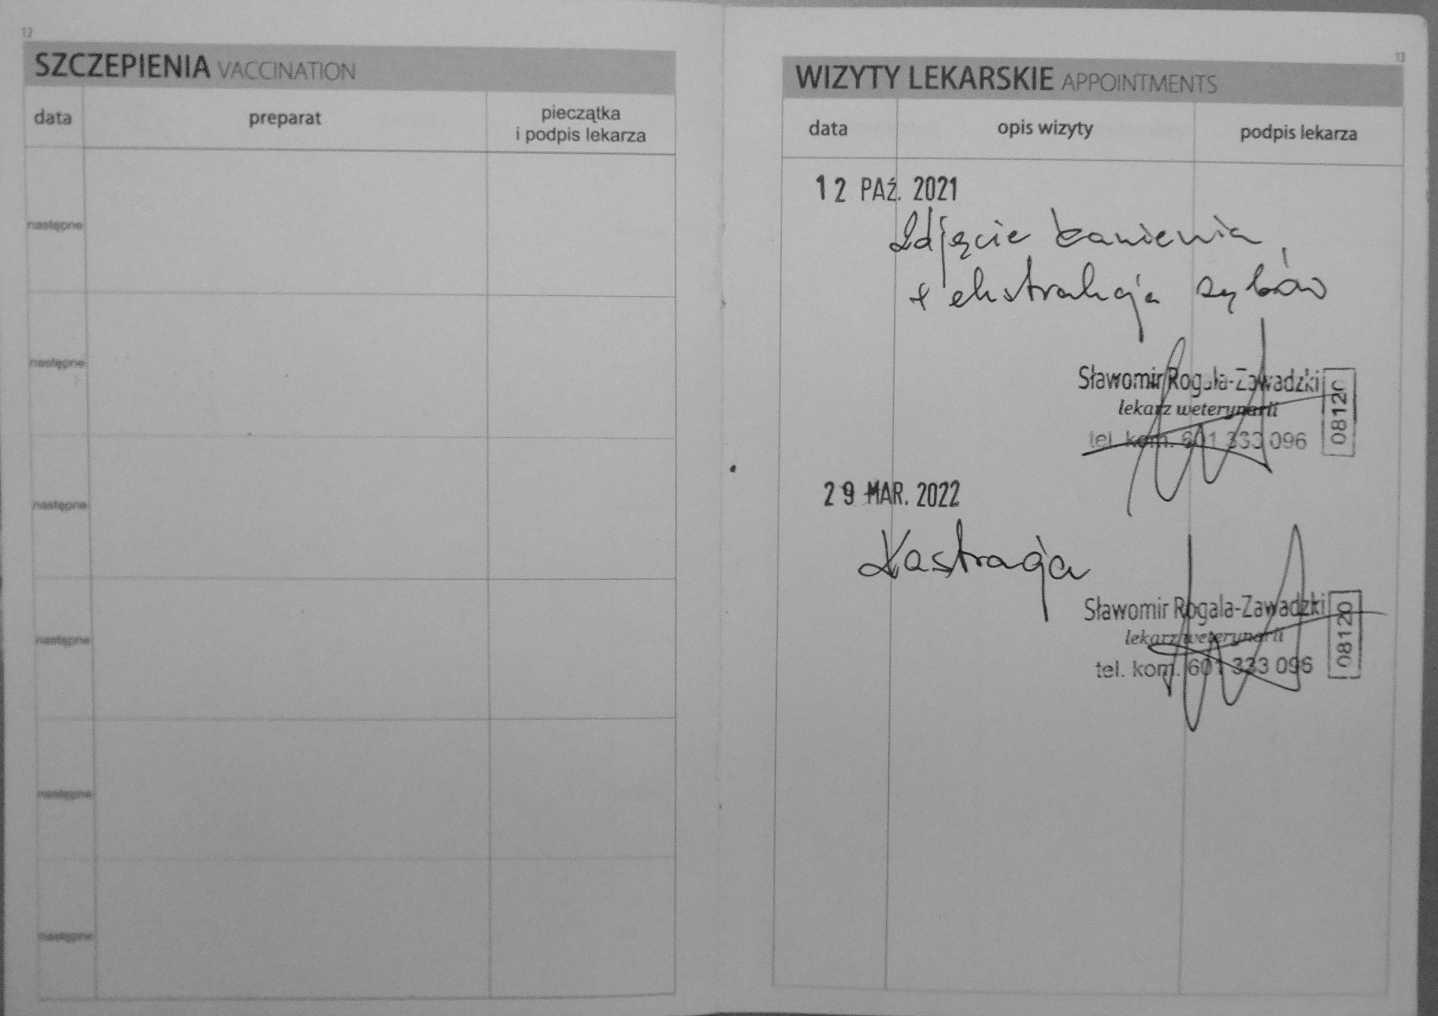 12
SZCZEPIENIA VACCINATION
data
preparat
pieczątka
i podpis lekarza
następne
następne
następne
następne
następne
następne
13
WIZYTY LEKARSKIE APPOINTMENTS
data
opis wizyty
podpis lekarza
12 PAŹ. 2021
Zdjęcie kamienia
+ ekstrakcja zębów
Sławomir Rogala-Zawadzki
lekarz weterynarii
tel. kom. 601 333 096
08120
29 MAR. 2022
Kastracja
Sławomir Rogala-Zawadzki
lekarz weterynarii
tel. kom. 601 333 096
08120